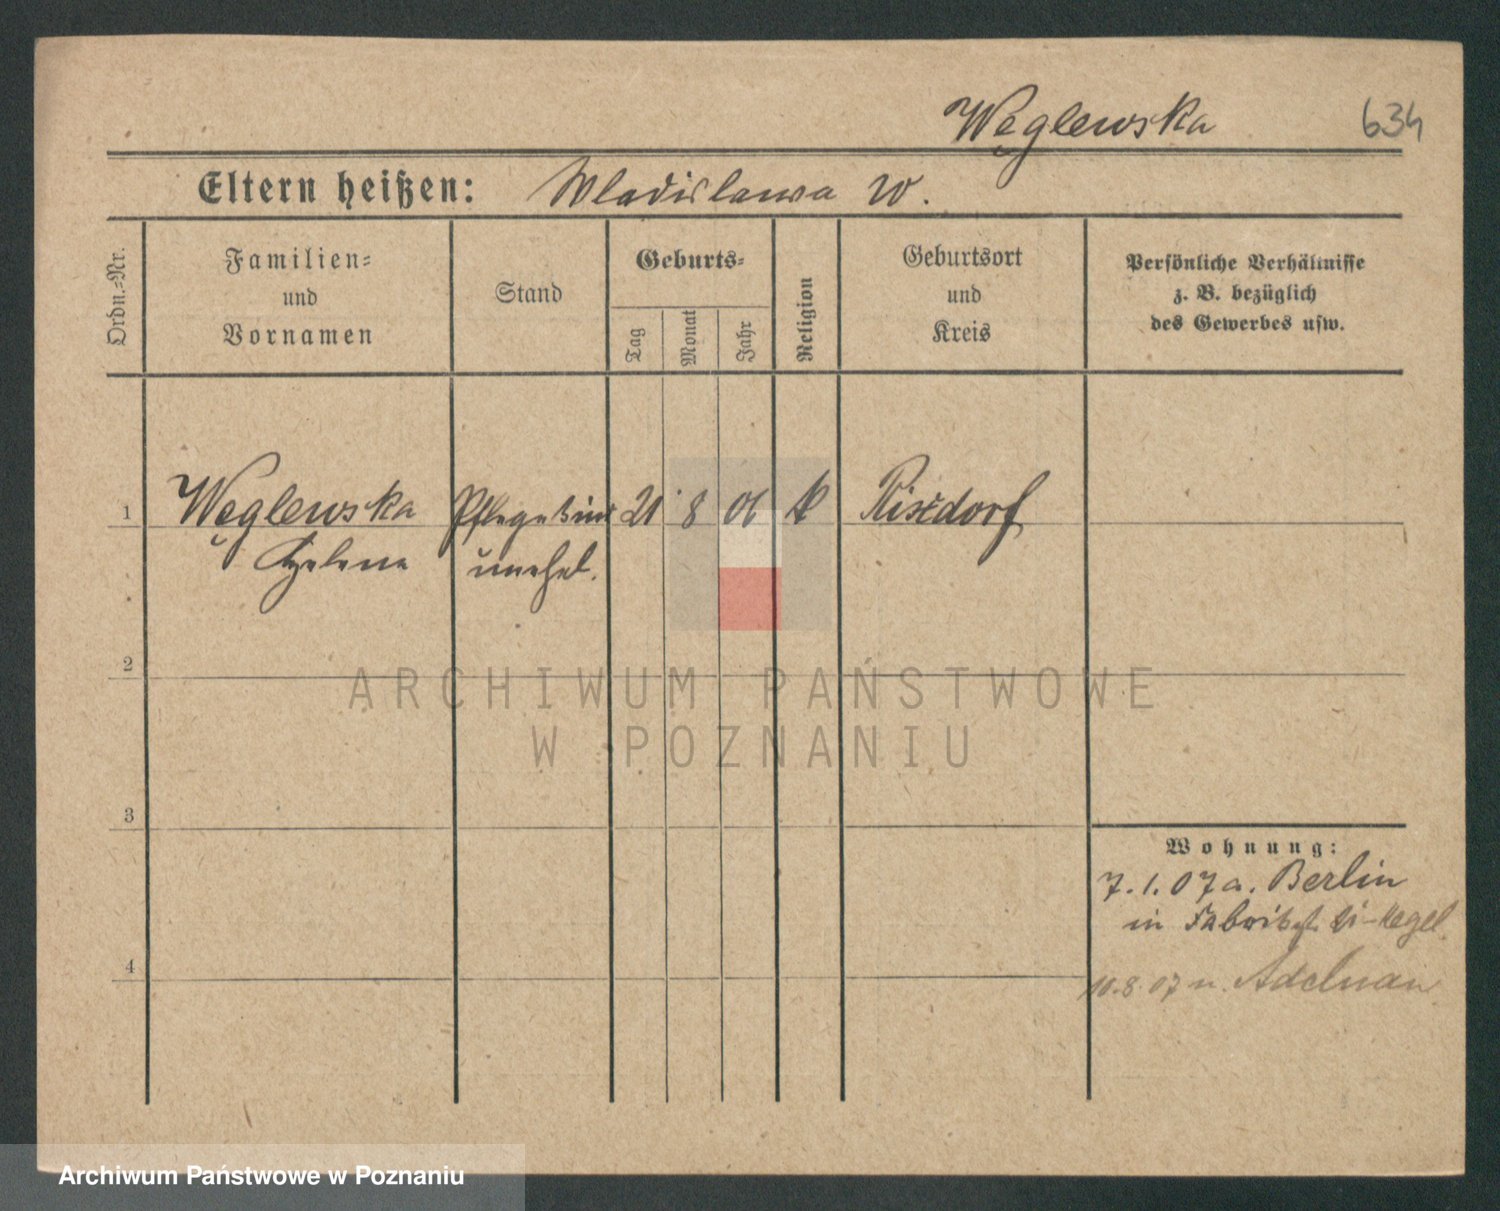 Węglewska 634
Eltern heißen: Wladislawa W.
Ordn.-Nr.
Familien-
und
Vornamen
Stand
Geburts-
Tag
Monat
Jahr
Religion
Geburtsort
und
Kreis
Persönliche Verhältnisse
z. B. bezüglich
des Gewerbes usw.
1 Węglewska Pflegekind 21 8 06 k Rixdorf
Helene unehel.
2
3
4
Wohnung:
7. 1. 07 a. Berlin
in
10. 8. 07 n. Adelnau
ARCHIWUM PAŃSTWOWE
W POZNANIU
Archiwum Państwowe w Poznaniu